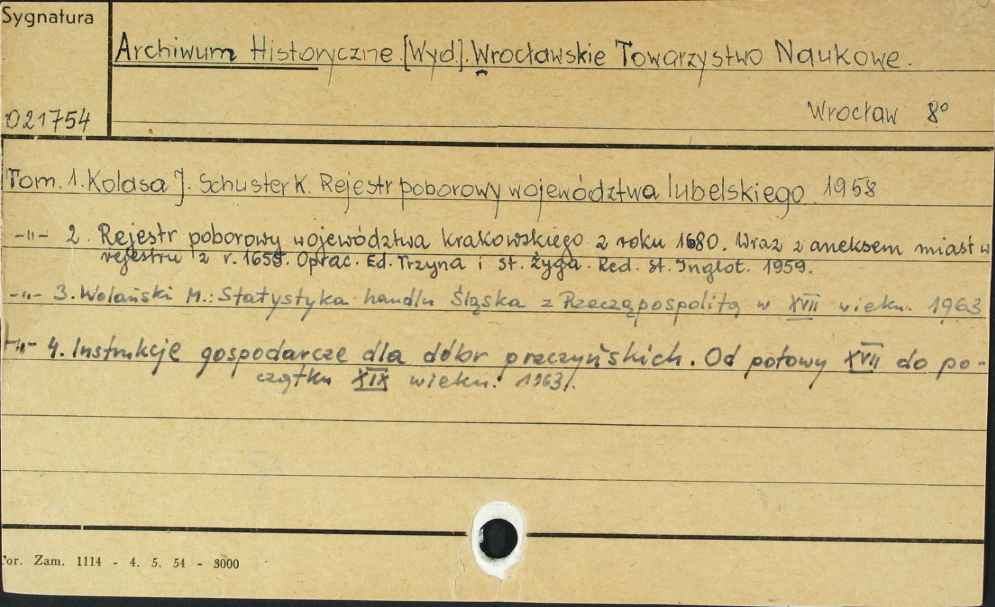 Sygnatura
Archiwum Historyczne [Wyd.] Wrocławskie Towarzystwo Naukowe.
021754
Wrocław 8°
Tom. 1. Kolasa J. Schuster K. Rejestr poborowy województwa lubelskiego. 1958
-"- 2. Rejestr poborowy województwa krakowskiego z roku 1680. Wraz z aneksem miast w
rejestru z r. 1655. Oprac. Ed. Trzyna i St. Żyga. Red. St. Inglot. 1959.
-"- 3. Wolański M.: Statystyka handlu Śląska z Rzecząpospolitą w XVII wieku. 1963
-"- 4. Instrukcje gospodarcze dla dóbr Od połowy XVII do po-
czątku XIX wieku. 1963.
or. Zam. 1114 - 4. 5. 54 - 3000